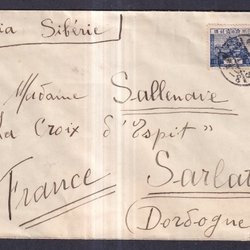 via Sibérie
Madame Sallendre
La Croix d'Espit"
France
Sarlat
(Dordogne